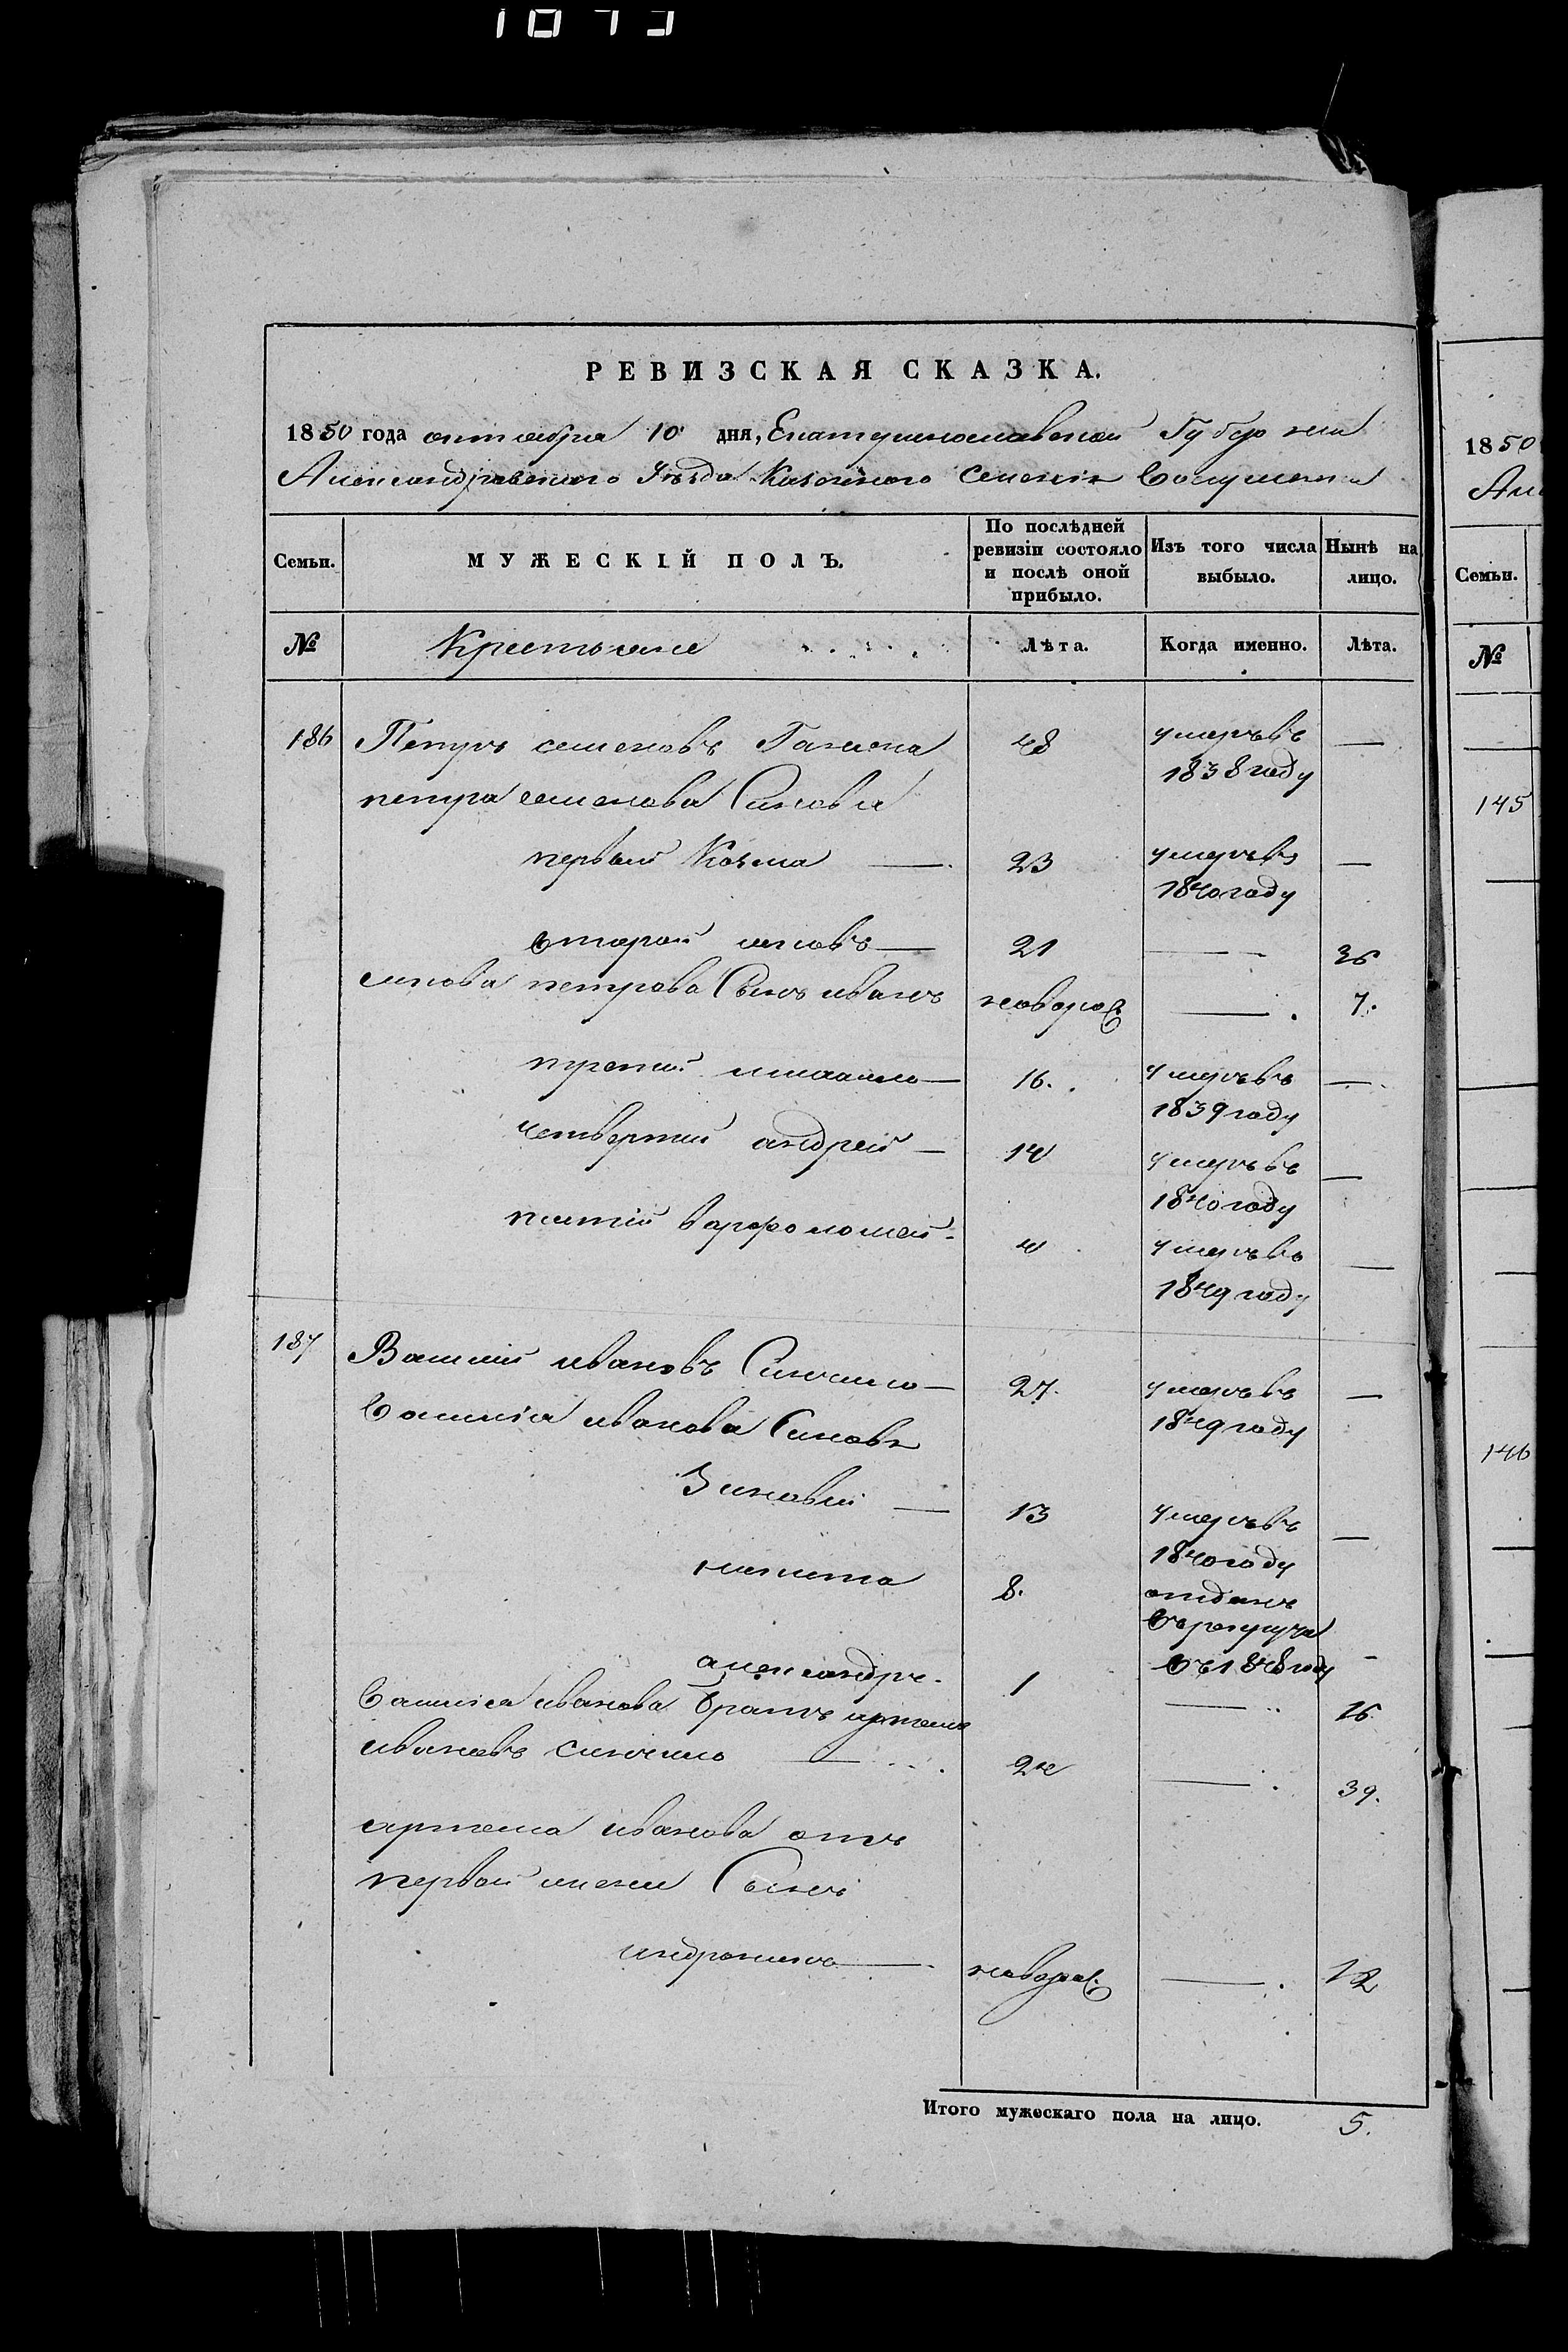 1073
РЕВИЗСКАЯ СКАЗКА.
1850 года октября 10 дня, Екатеринославской Губернии
Александровского Уѣзда Казенного Селенія
Семьи. МУЖЕСКІЙ ПОЛЪ. По послѣдней ревизіи состояло и послѣ оной прибыло. Изъ того числа выбыло. Нынѣ на лицо.
№ Крестьяне Лѣта. Когда именно. Лѣта.
186 Петръ семеновъ 48 умеръ въ —
1838 году
петра семенова Синовья
первый Козма — 23 умеръ въ —
1840 году
второй — 21 — 36
петрова Сынъ иванъ новорож — 7.
третий — 16. умеръ въ —
1839 году
четвертий андрей — 14 умеръ въ —
1840 году
пятій варфоломей — 4 умеръ въ —
1849 году
187 Василий ивановъ — 27. умеръ въ —
1849 году
Василія иванова Синовя
Зиновий — 13 умеръ въ —
1840 году
никита 8. отданъ
въ рекруты
въ 1848 году —
александръ. 1 — 16.
Василія иванова братъ артемъ
ивановъ — 24 — 39.
артема иванова отъ
первой жени Сынъ
андроникъ — новорож. — 12
Итого мужескаго пола на лицо. 5.
1850
Але
Семьи.
№
145
146